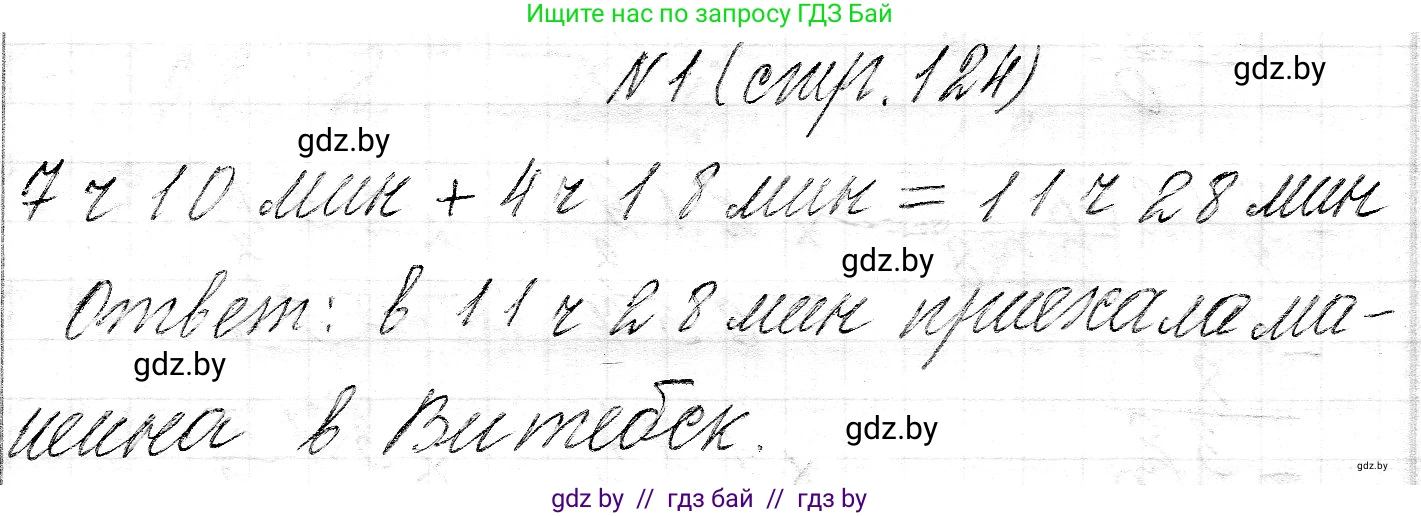 Ищите нас по запросу ГДЗ Бай
N1 (стр. 124) gdz.by
gdz.by
7 ч 10 мин + 4 ч 18 мин = 11 ч 28 мин
gdz.by
Ответ: в 11 ч 28 мин приехала ма-
gdz.by
шина в Витебск. gdz.by
gdz.by
gdz by // гдз бай // гдз by